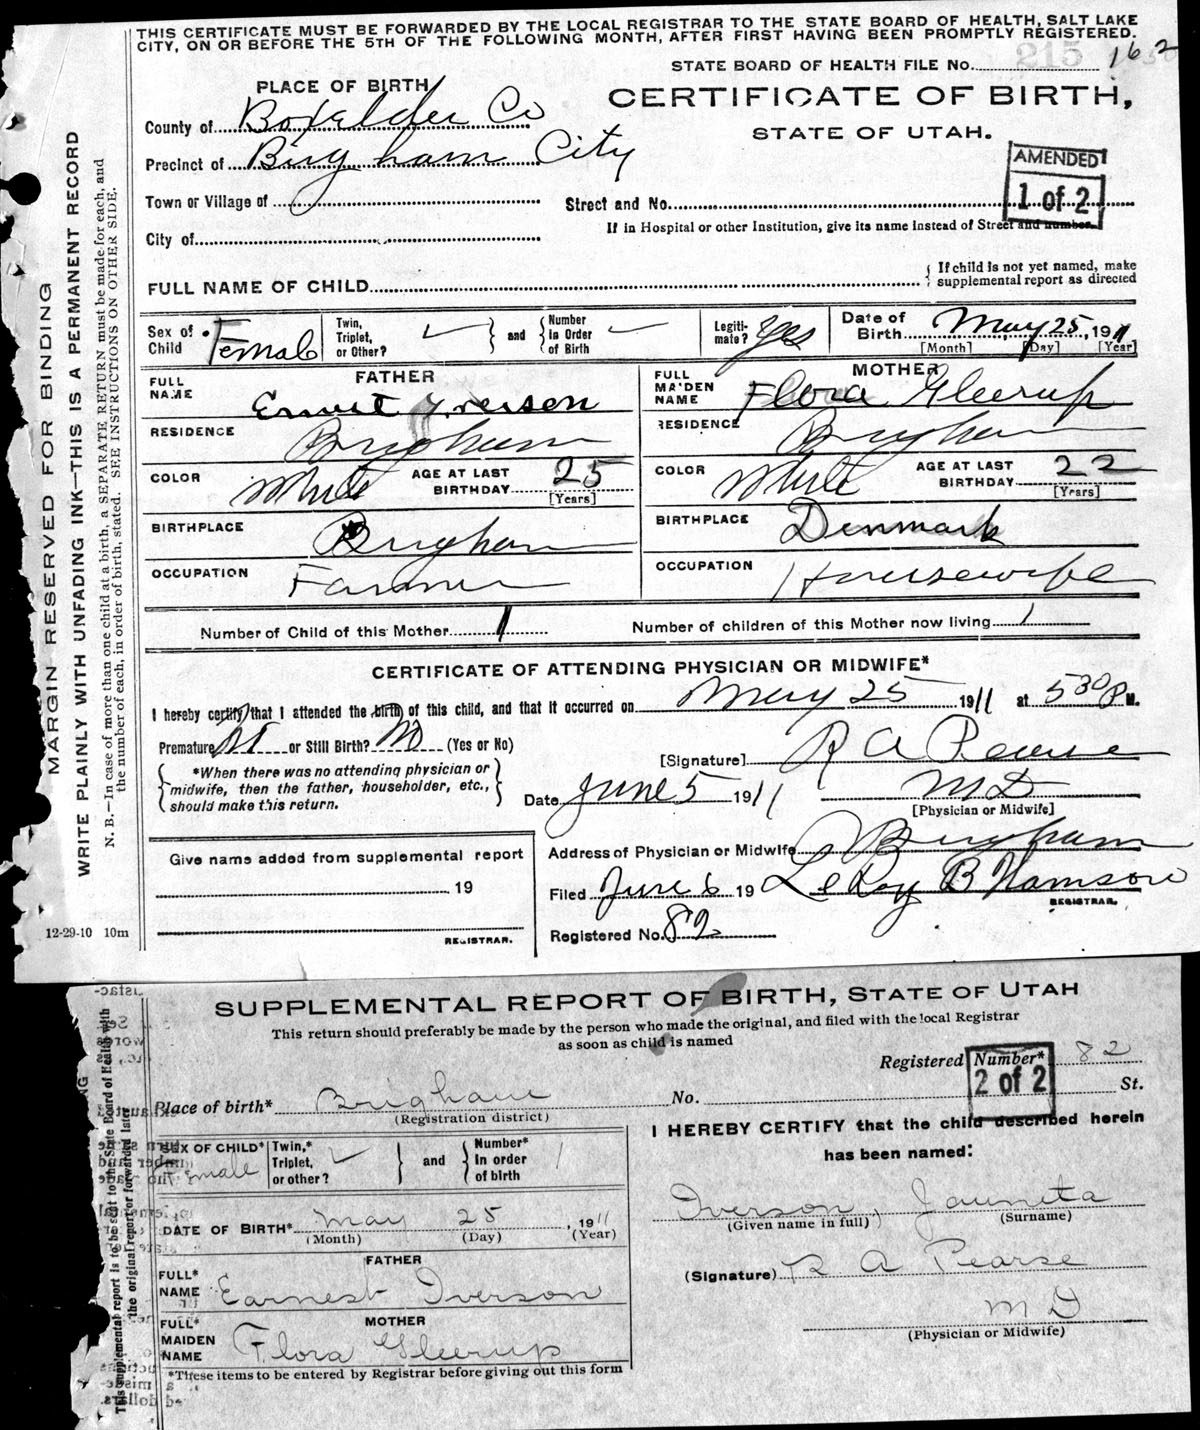 THIS CERTIFICATE MUST BE FORWARDED BY THE LOCAL REGISTRAR TO THE STATE BOARD OF HEALTH, SALT LAKE
CITY, ON OR BEFORE THE 5TH OF THE FOLLOWING MONTH, AFTER FIRST HAVING BEEN PROMPTLY REGISTERED.
STATE BOARD OF HEALTH FILE No. 162
PLACE OF BIRTH
CERTIFICATE OF BIRTH,
STATE OF UTAH.
County of Boxelder Co
Precinct of Brigham City
AMENDED
1 of 2
Town or Village of
Street and No.
City of
If in Hospital or other Institution, give its name instead of Street and number.
FULL NAME OF CHILD
If child is not yet named, make
supplemental report as directed
Sex of Child Female
Twin, Triplet, or Other?
and
Number In Order of Birth
Legitimate? Yes
Date of Birth May 25, 1911
[Month] [Day] [Year]
FATHER
FULL NAME Ernest Iverson
RESIDENCE Brigham
COLOR White AGE AT LAST BIRTHDAY 25 [Years]
BIRTHPLACE Brigham
OCCUPATION Farmer
MOTHER
FULL MAIDEN NAME Flora Gleerup
RESIDENCE Brigham
COLOR White AGE AT LAST BIRTHDAY 22 (Years)
BIRTHPLACE Denmark
OCCUPATION Housewife
Number of Child of this Mother 1 Number of children of this Mother now living 1
CERTIFICATE OF ATTENDING PHYSICIAN OR MIDWIFE*
I hereby certify that I attended the birth of this child, and that it occurred on May 25 1911 at 5 30 P M.
Premature No or Still Birth? No (Yes or No)
*When there was no attending physician or
midwife, then the father, householder, etc.,
should make this return.
[Signature] R A Pearse
M D
[Physician or Midwife]
Date June 5 1911
Address of Physician or Midwife Brigham
Filed June 6 19 LeRoy B
REGISTRAR.
Registered No. 82
Give name added from supplemental report
, 19
REGISTRAR.
12-29-10 10m
MARGIN RESERVED FOR BINDING
WRITE PLAINLY WITH UNFADING INK—THIS IS A PERMANENT RECORD
N. B.—In case of more than one child at a birth, a SEPARATE RETURN must be made for each, and
the number of each, in order of birth, stated. SEE INSTRUCTIONS ON OTHER SIDE.
SUPPLEMENTAL REPORT OF BIRTH, STATE OF UTAH
This return should preferably be made by the person who made the original, and filed with the local Registrar
as soon as child is named
Registered Number* 82
2 of 2
Place of birth* Brigham No. St.
(Registration district)
SEX OF CHILD* Female
Twin,* Triplet, or other?
and
Number* In order of birth 1
DATE OF BIRTH* May 25, 1911
(Month) (Day) (Year)
FATHER
FULL* NAME Earnest Iverson
MOTHER
FULL* MAIDEN NAME Flora Gleerup
*These items to be entered by Registrar before giving out this form
I HEREBY CERTIFY that the child described herein
has been named:
Iverson, Jauneta
(Given name in full) (Surname)
(Signature) R A Pearse
M D
(Physician or Midwife)
This supplemental report is to be sent to the State Board of Health with
the original report or forwarded later